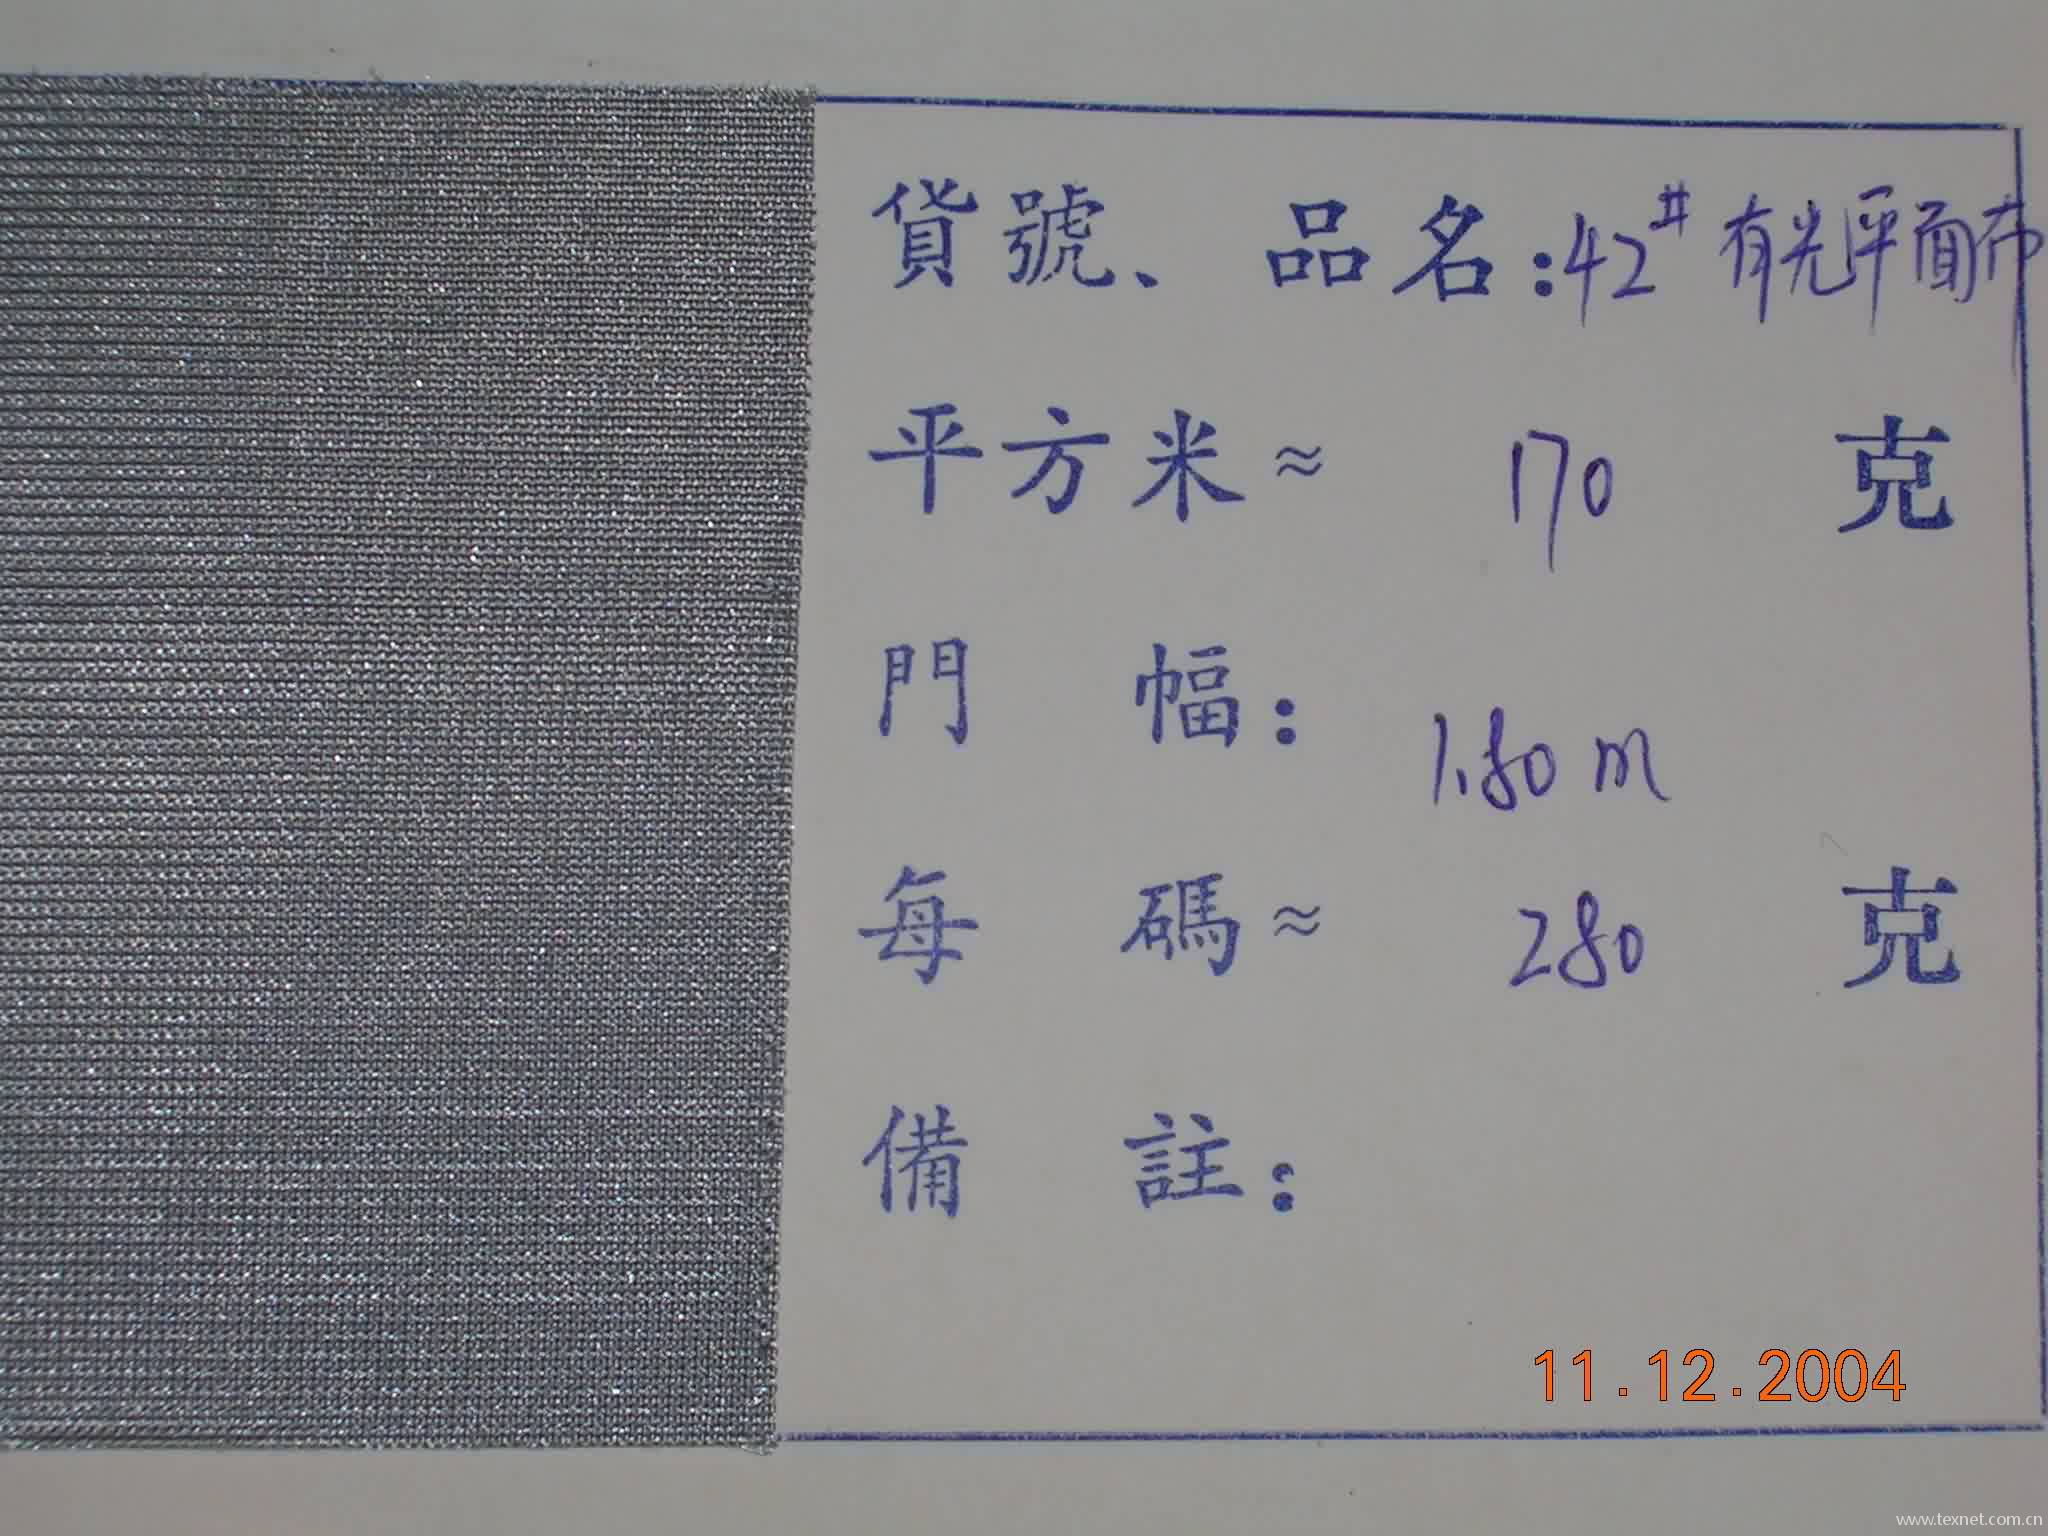 貨號、品名:42# 有光平面布
平方米≈ 170 克
門幅: 1.80 m
每碼≈ 280 克
備註:
11.12.2004
www.texnet.com.cn